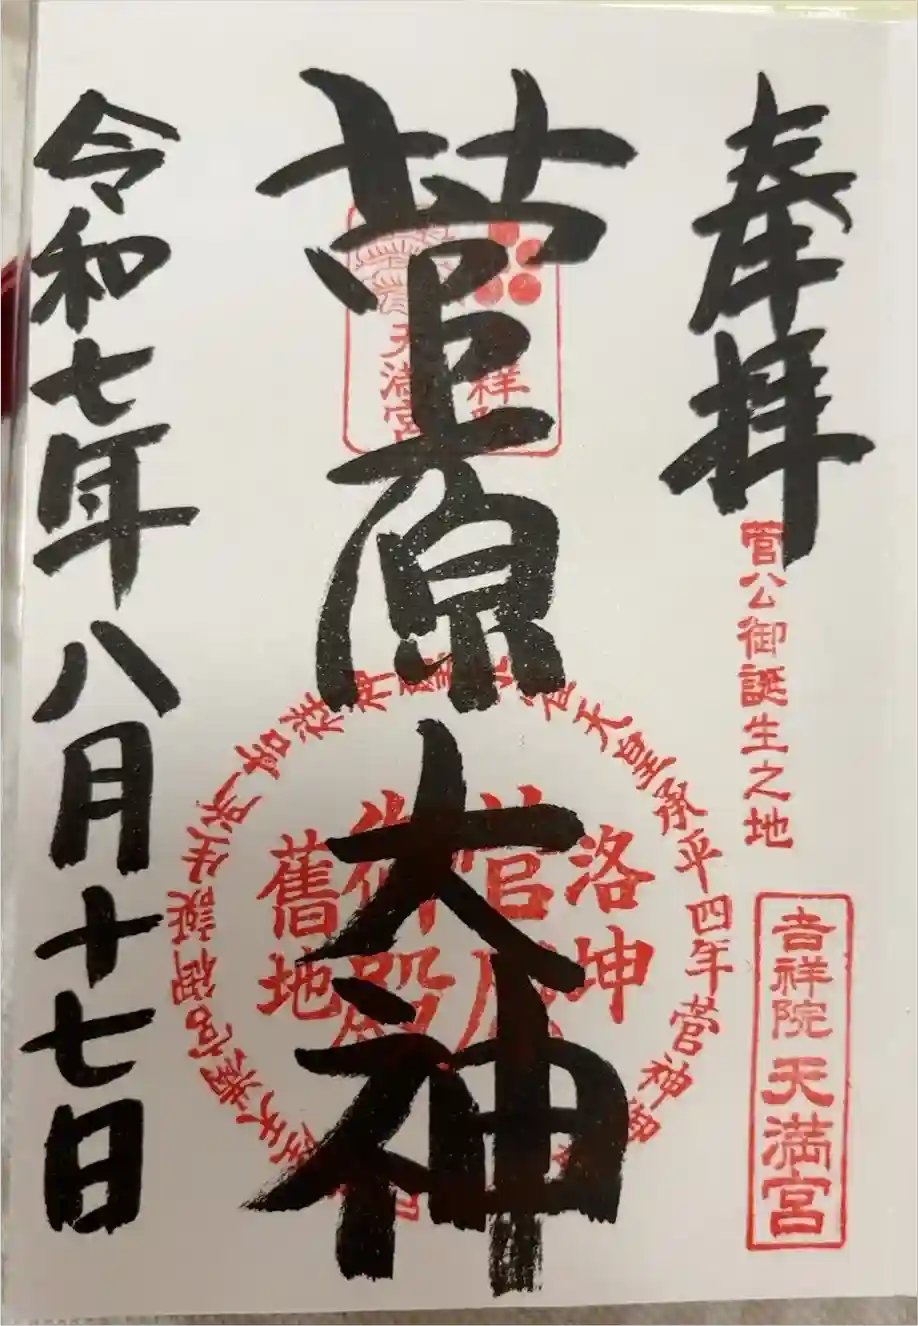 奉拝
菅公御誕生之地
吉祥院天満宮
菅原大神
祥
天満宮
洛坤
舊地
天皇承平四年菅神
御誕生所
令和七年八月十七日